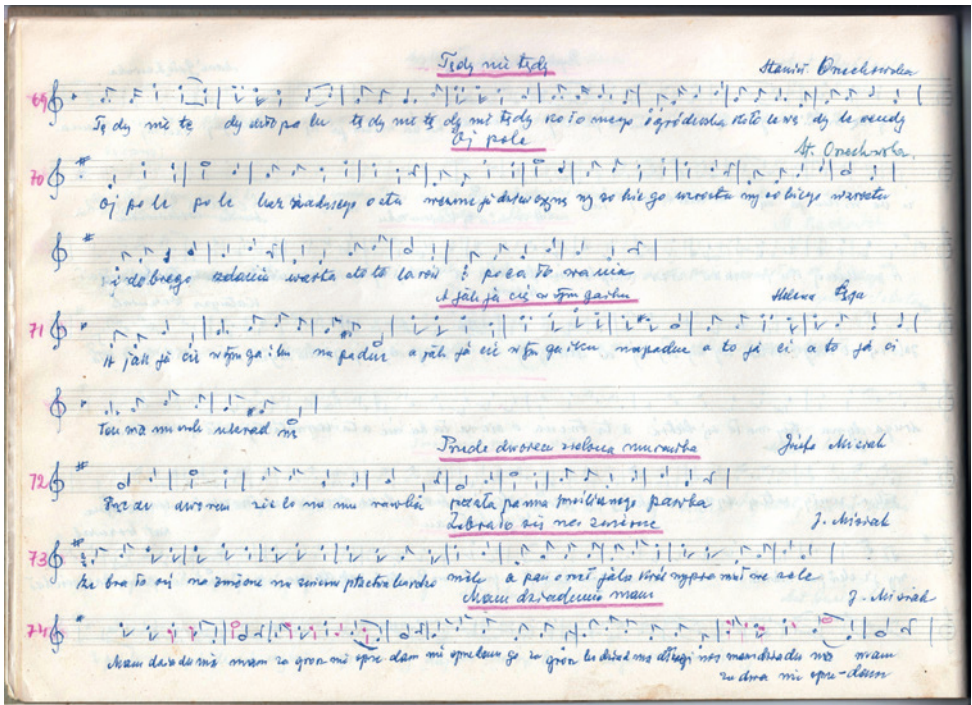 Tędy nie tędy
Stanisł. Orzechowska
69
Tę dy nie tę dy dwo po lu tę dy nie tę dy nie tędy ko ło mego ogródeczka koło le wę dy
Oj pole
St. Orzechowska.
70
Oj po le po le bez żadnego wy so kie go wzrostu wysokiego wzrostu
i dobrego warta to to la rów i poca ło wa nia
A jak ja cię w tym gaiku
Helena
71
A jak ja cię w tym ga iku na padnę a jak ja cię w tym gaiku napadnę a to ja ci a to ja ci
Przede dworem zielona murawka
Józefa Misiak
72
Przede dworem zie lo na mu rawka panna pawka
Zebrało się na
J. Misiak
73
Ze bra ło się na ptactwa bardzo mile a pan jako król w sole
Mam dziadunia mam
J. Misiak
74
Mam dziadunia mam za grosz nie sprze dam nie sprzedam go za grosz bo dziad ma długi nos mam dziadu nia mam
za dwa nie sprze-dam